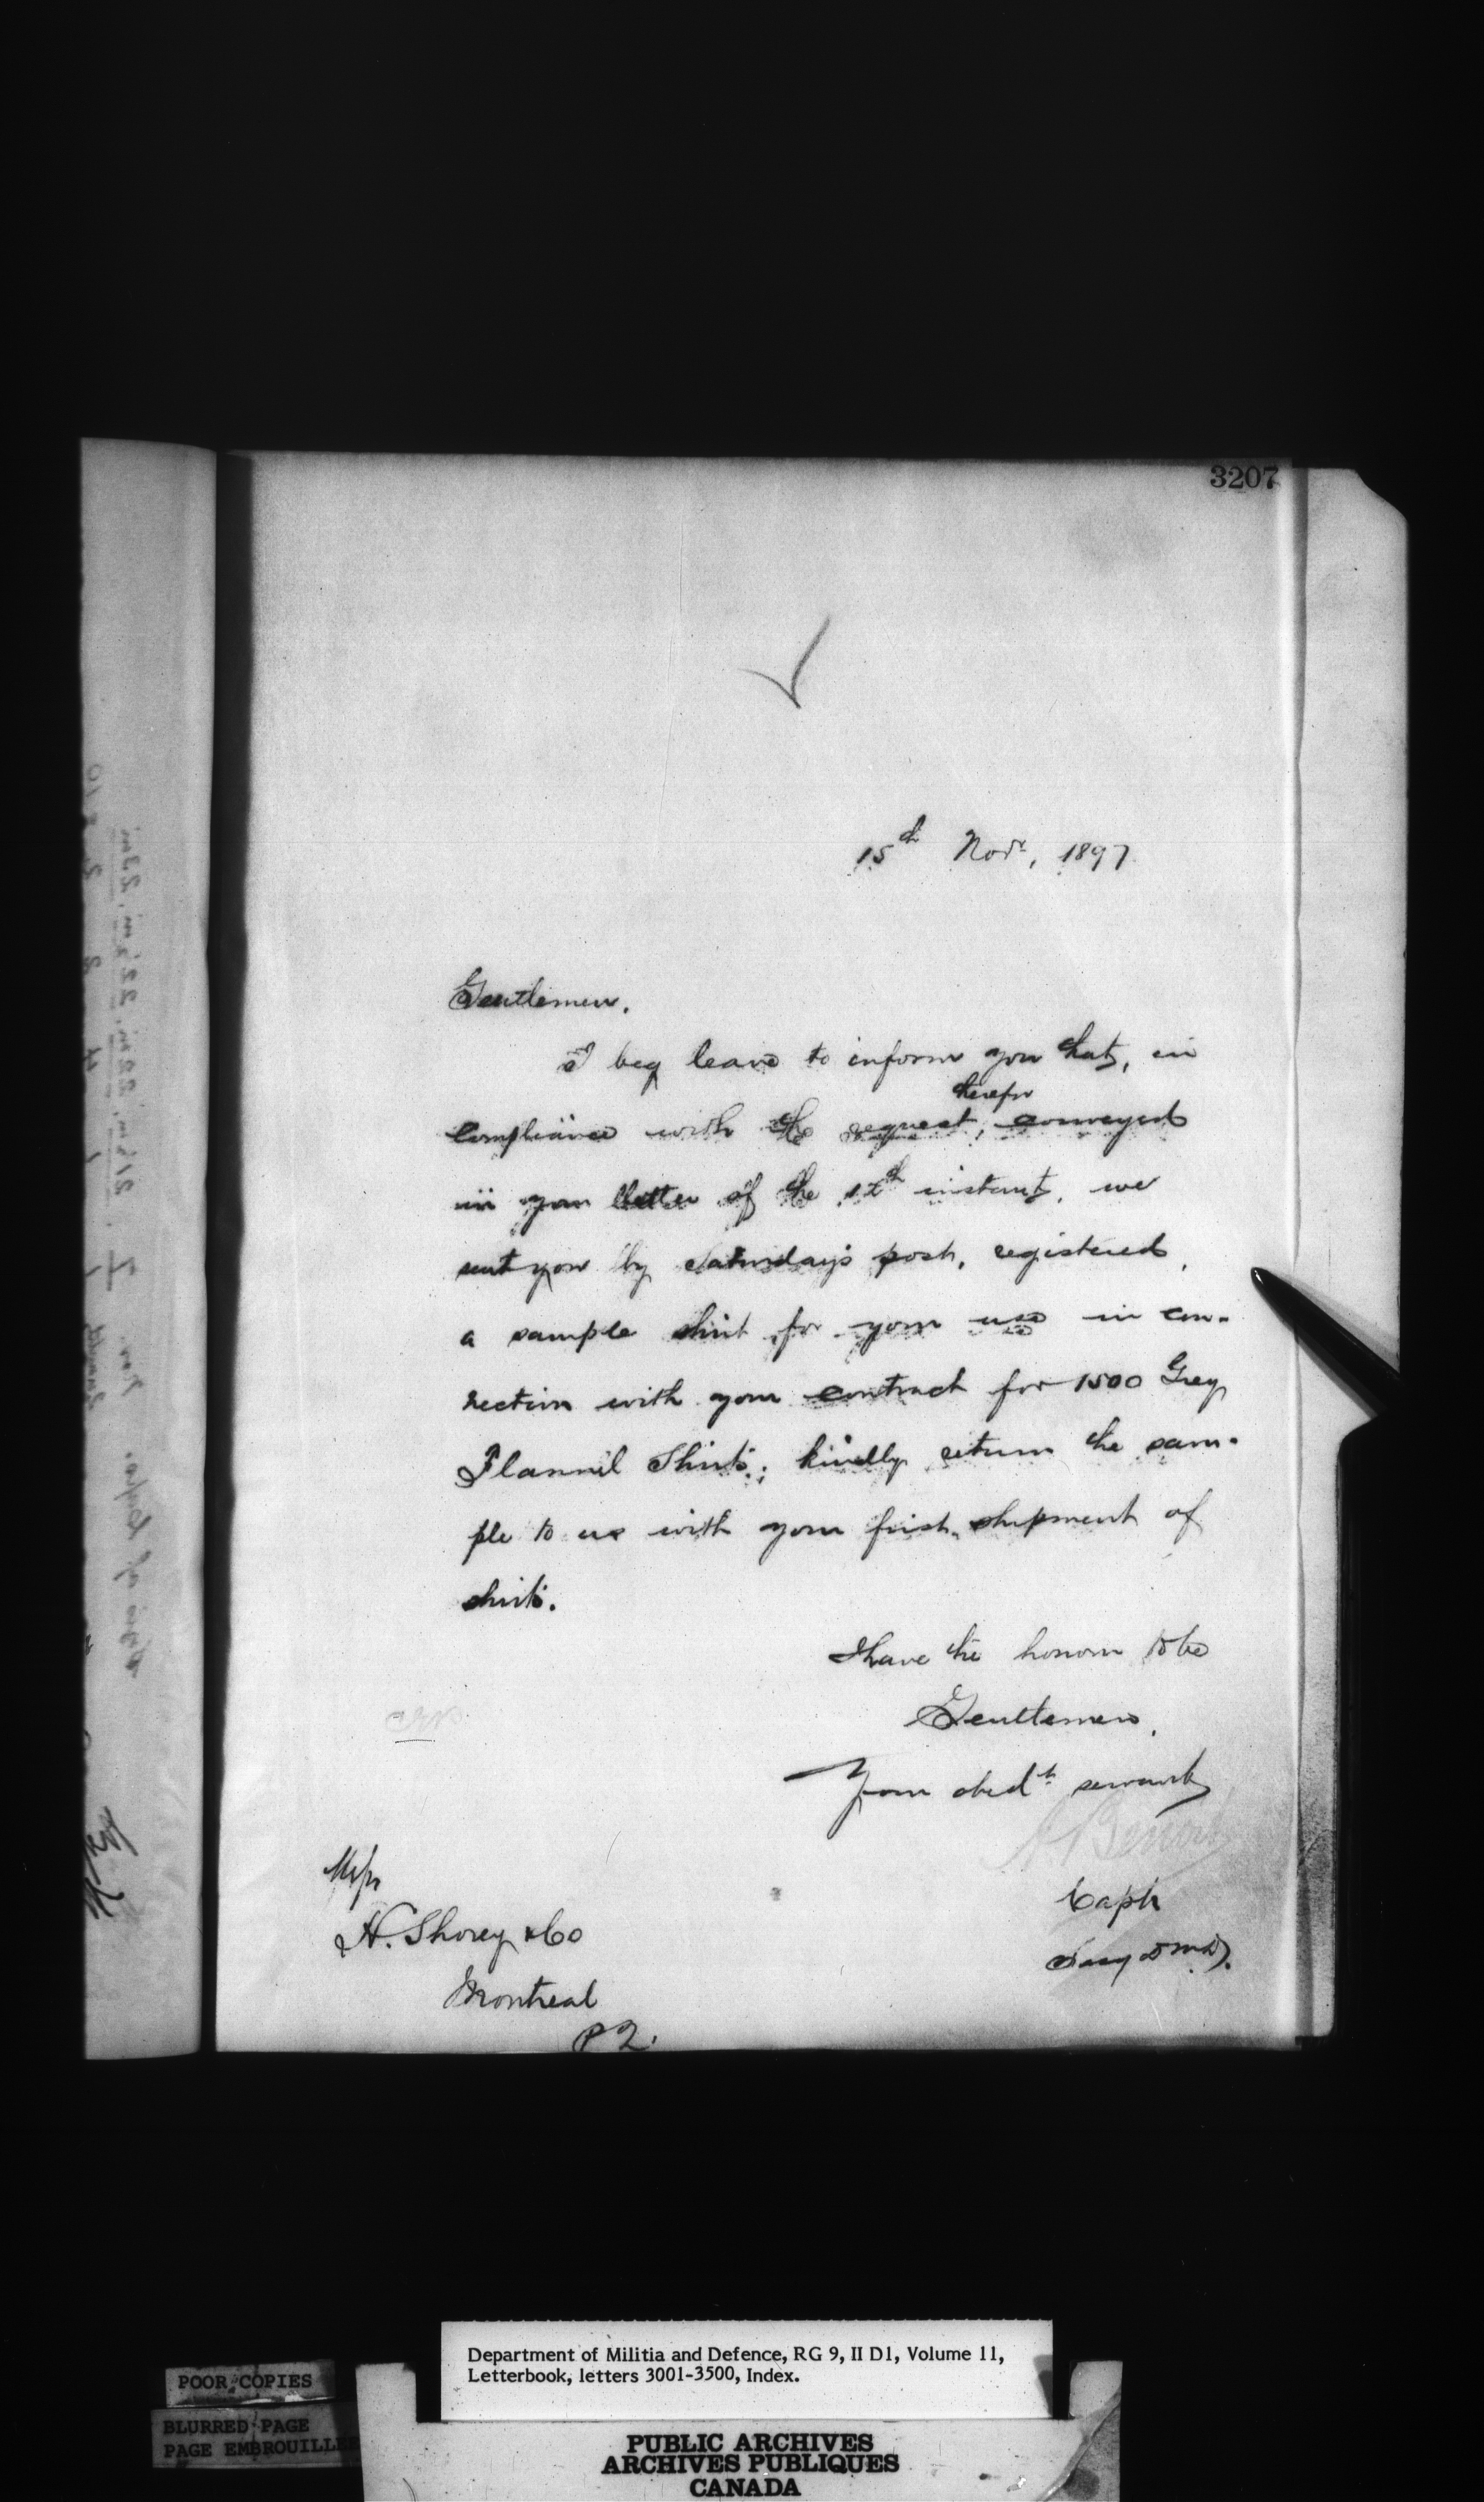 3207
15th Novr, 1897
Gentlemen.
I beg leave to inform you that, in
therefor
compliance with the request, conveyed
in your letter of the 12th instant, we
sent you by Saturday's post, registered,
a sample shirt for your use in con-
nection with your contract for 1500 Grey
Flannel Shirts; kindly return the sam-
ple to us with your first shipment of
shirts.
I have the honour to be
Gentlemen,
Your obedt servant
Benoit
Capt
Secy D M D.
Messrs
H. Shorey & Co
Montreal
P Q.
Department of Militia and Defence, RG 9, II D1, Volume 11,
Letterbook, letters 3001-3500, Index.
POOR COPIES
BLURRED PAGE
PAGE EMBROUILLE
PUBLIC ARCHIVES
ARCHIVES PUBLIQUES
CANADA